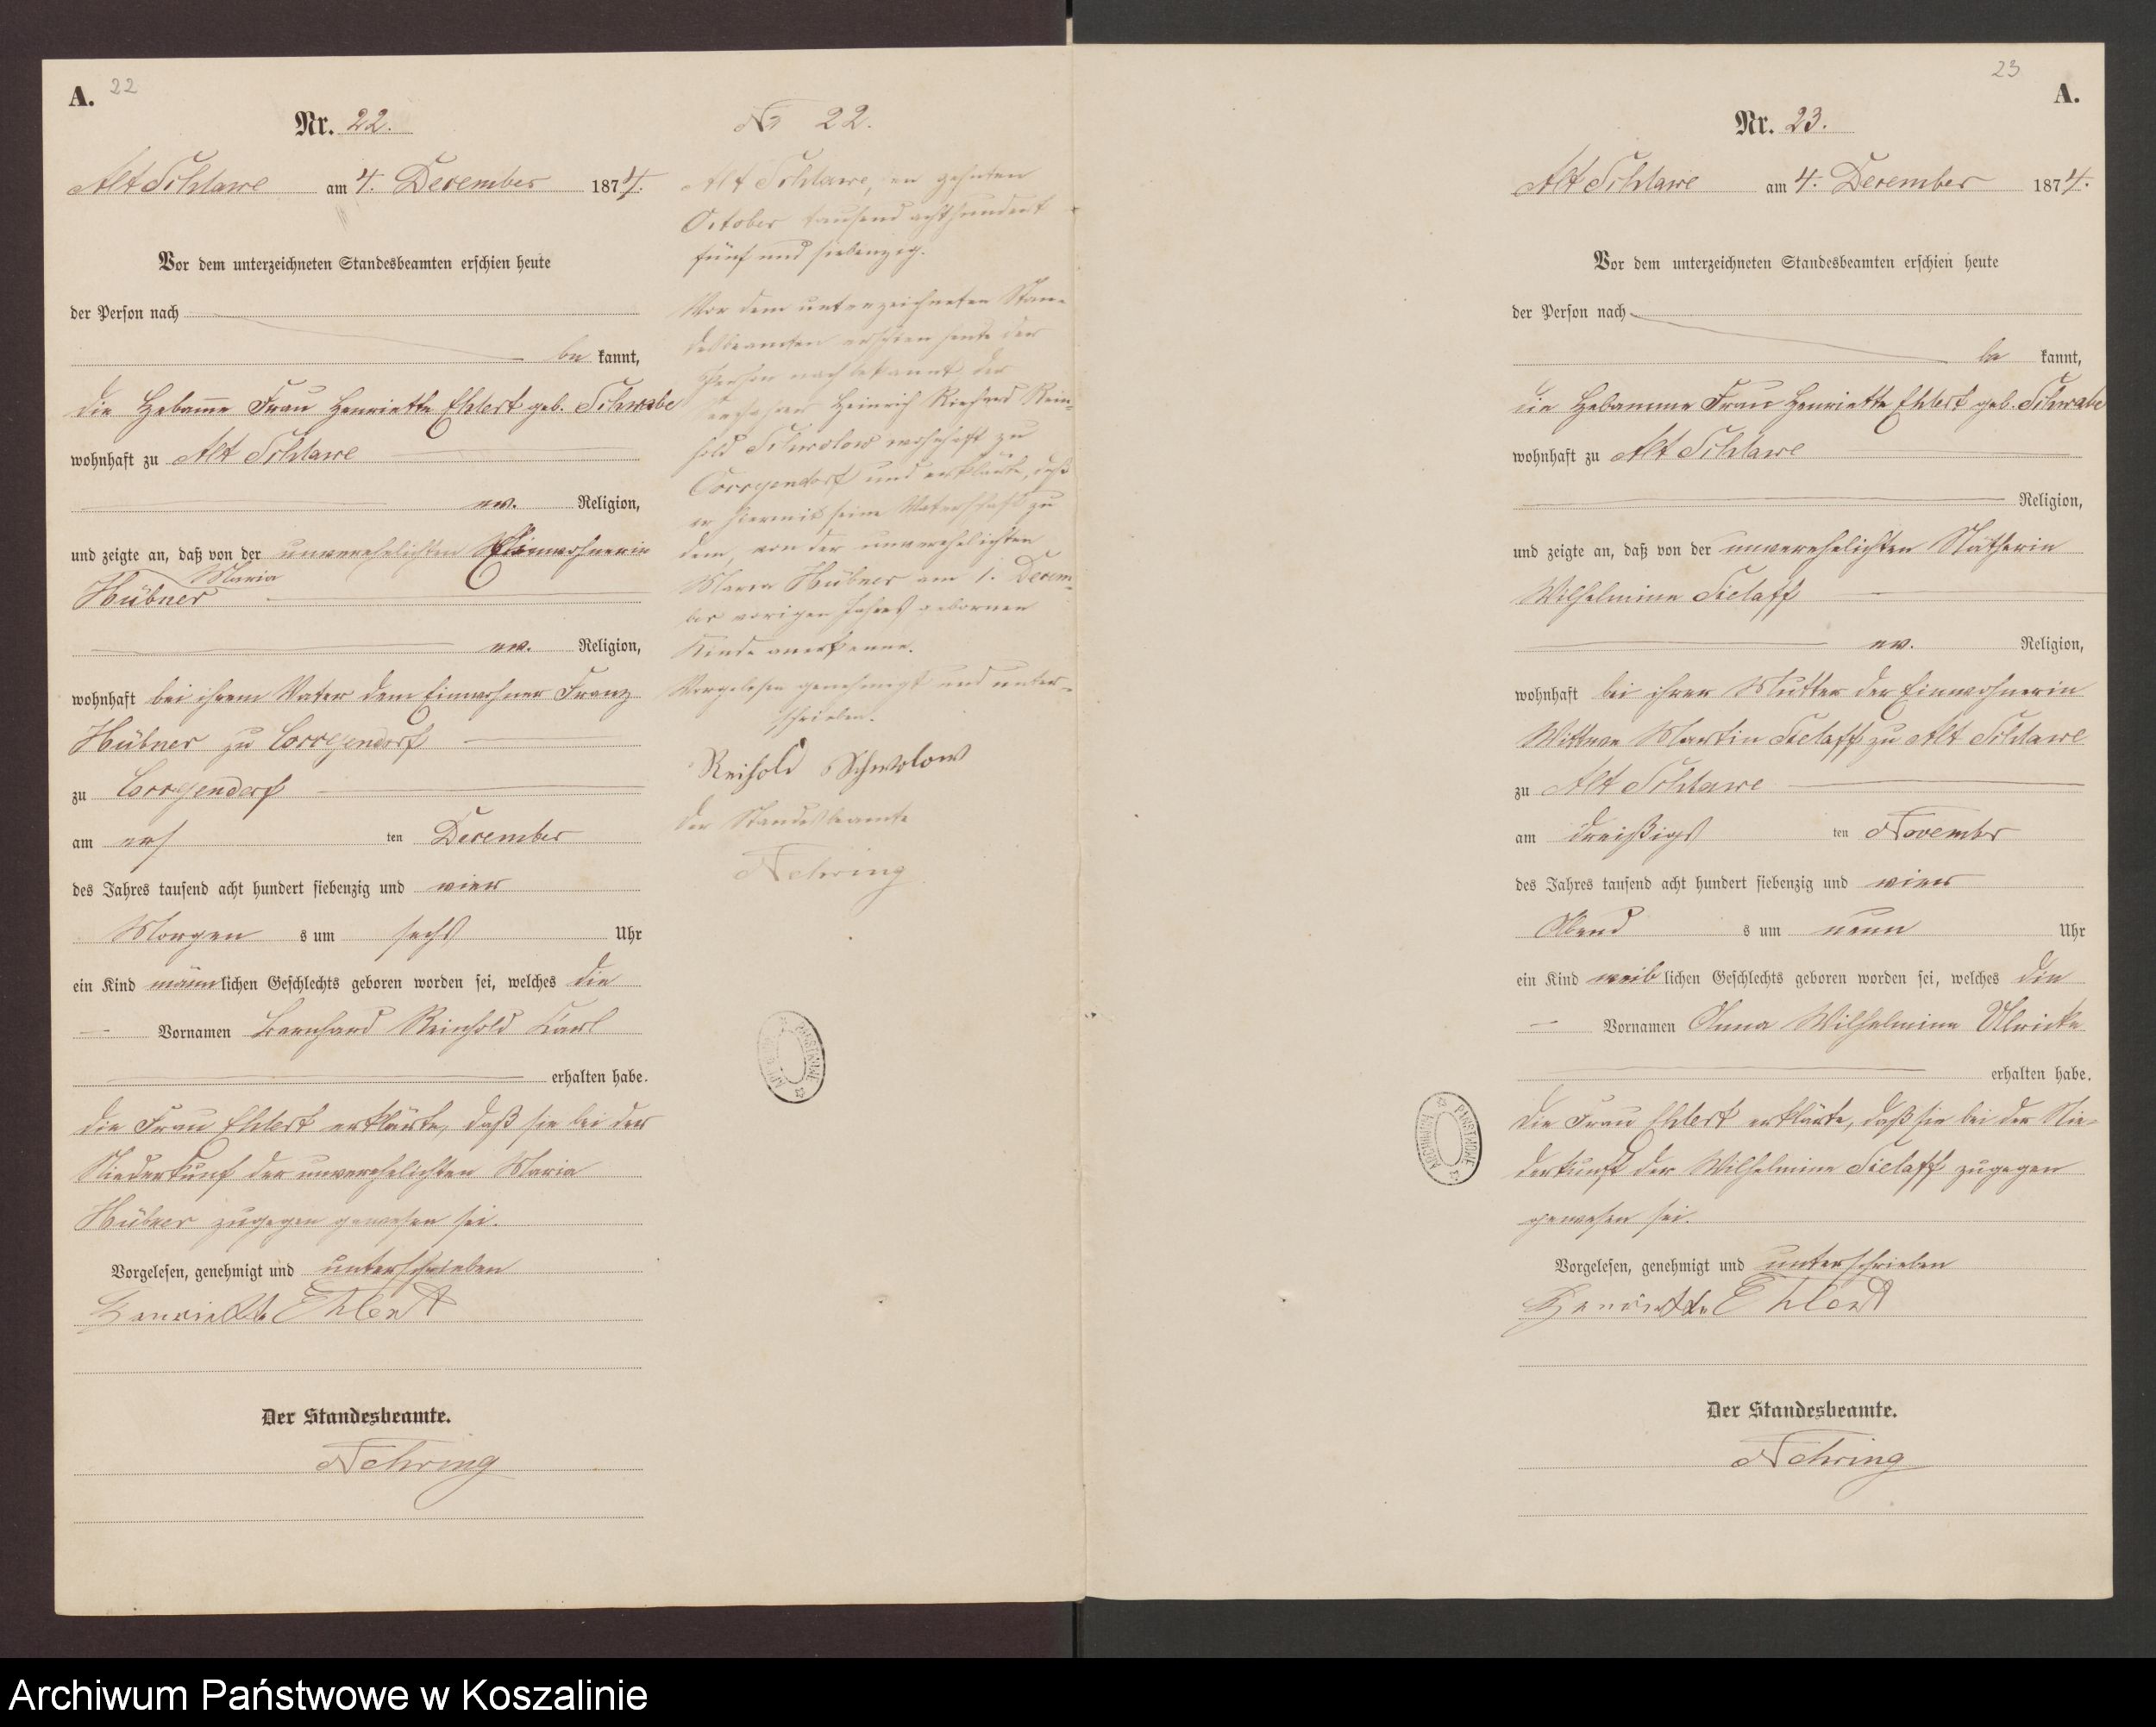 A. 22
Nr. 22.
Alt Schlawe am 4. December 1874.
Vor dem unterzeichneten Standesbeamten erschien heute
der Person nach
be kannt,
die Hebamme Frau Henriette Ehlert geb. Schwabe
wohnhaft zu Alt Schlawe
ev. Religion,
und zeigte an, daß von der unverehelichten Einwohnerin
Maria
Hübner
ev. Religion,
wohnhaft bei ihrem Vater dem Einwohner Franz
Hübner zu Coccejendorf
zu Coccejendorf
am ers ten December
des Jahres tausend acht hundert siebenzig und vier
Morgen s um sechs Uhr
ein Kind männlichen Geschlechts geboren worden sei, welches die
Vornamen Bernhard Reinhold Karl
erhalten habe.
Die Frau Ehlert erklärte, daß sie bei der
Niederkunf der unverehelichten Maria
Hübner zugegen gewesen sei.
Vorgelesen, genehmigt und unterschrieben
Henriette Ehlert
Der Standesbeamte.
Nehring
No 22.
Alt Schlawe, en zehnten
October tausend achthundert
fünf und siebenzig.
Vor dem unterzeichneten Stan-
desbeamten erschien heute der
Person nach bekannt der
Heinrich Richard Rein-
hold Schwolow wohnhaft zu
Coccejendorf und erklärte, daß
er hiermit seine Vaterschaft zu
dem, von der unverehelichten
Maria Hübner am 1. Decem-
ber vorigen Jahres gebornen
Kinde anerkenne.
Vorgelesen genehmigt und unter-
schrieben.
Reihold Schwolow
Der Standesbeamte
Nehring
ARCHIWUM PAŃSTWOWE
23
A.
Nr. 23.
Alt Schlawe am 4. December 1874.
Vor dem unterzeichneten Standesbeamten erschien heute
der Person nach
be kannt,
die Hebamme Frau Henriette Ehlert geb. Schwabe
wohnhaft zu Alt Schlawe
Religion,
und zeigte an, daß von der unverehelichten Nätherin
Wilhelmine Sielaff
ev. Religion,
wohnhaft bei ihrer Mutter der Einwohnerin
Wittwe Martin Sielaff zu Alt Schlawe
zu Alt Schlawe
am dreißigs ten November
des Jahres tausend acht hundert siebenzig und vier
Abend s um neun Uhr
ein Kind weiblichen Geschlechts geboren worden sei, welches die
Vornamen Anna Wilhelmine Ulricke
erhalten habe.
Die Frau Ehlert erklärte, daß sie bei der Nie-
derkunft der Wilhelmine Sielaff zugegen
gewesen sei.
Vorgelesen, genehmigt und unterschrieben
Henriette Ehlert
Der Standesbeamte.
Nehring
ARCHIWUM PAŃSTWOWE
Archiwum Państwowe w Koszalinie